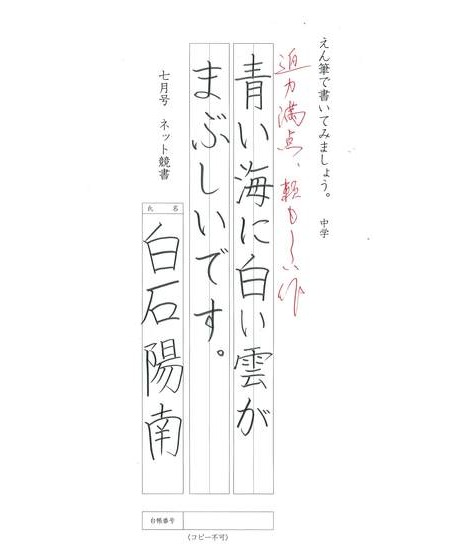 えん筆で書いてみましょう。 中学
迫力満点、頼もしい作
青い海に白い雲が
まぶしいです。
七月号 ネット競書
氏名
白石陽南
台帳番号
〈コピー不可〉